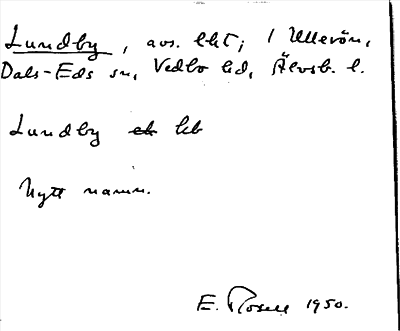 Lundby, avs. lht; i Ulleröen,
Dals-Eds sn, Vedbo hd, Älvsb. l.
Lundby lb
Nytt namn.
E. Rosell 1950.